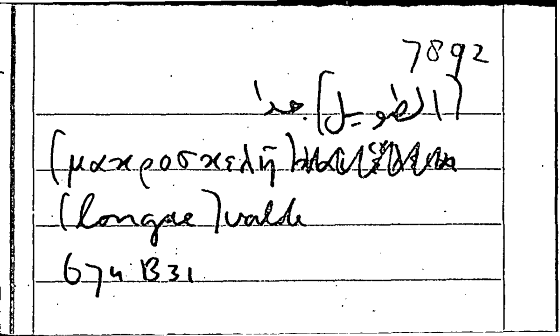 7892
(الطويل) جدا
(μακροσκελῆ)
(longae) valde
674 B31